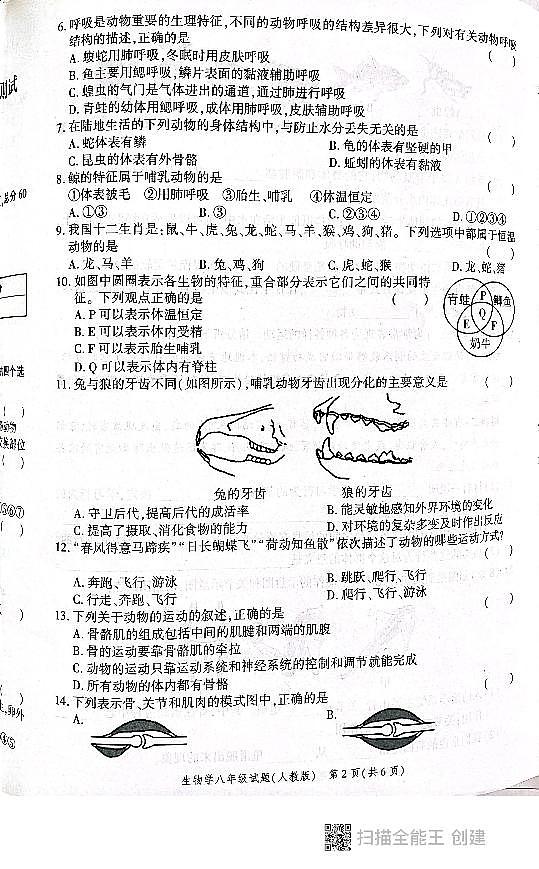 6. 呼吸是动物重要的生理特征,不同的动物呼吸的结构差异很大,下列对有关动物呼吸
结构的描述,正确的是 ( )
A. 蝮蛇用肺呼吸,冬眠时用皮肤呼吸
B. 鱼主要用鳃呼吸,鳞片表面的黏液辅助呼吸
C. 蝗虫的气门是气体进出的通道,通过肺进行呼吸
D. 青蛙的幼体用鳃呼吸,成体用肺呼吸,皮肤辅助呼吸
7. 在陆地生活的下列动物的身体结构中,与防止水分丢失无关的是 ( )
A. 蛇体表有鳞 B. 龟的体表有坚硬的甲
C. 昆虫的体表有外骨骼 D. 蚯蚓的体表有黏液
8. 鲸的特征属于哺乳动物的是 ( )
①体表被毛 ②用肺呼吸 ③胎生、哺乳 ④体温恒定
A. ①③ B. ③ C. ②③④ D. ①②③④
9. 我国十二生肖是:鼠、牛、虎、兔、龙、蛇、马、羊、猴、鸡、狗、猪。下列选项中都属于恒温
动物的是 ( )
A. 龙、马、羊 B. 兔、鸡、狗 C. 虎、蛇、猴 D. 龙、蛇、猪
10. 如图中圆圈表示各生物的特征,重合部分表示它们之间的共同特
征。下列观点正确的是 ( )
A. P 可以表示体温恒定
B. E 可以表示体内受精
C. F 可以表示胎生哺乳
D. Q 可以表示体内有脊柱
青蛙 P 鲫鱼
Q
E F
奶牛
11. 兔与狼的牙齿不同(如图所示),哺乳动物牙齿出现分化的主要意义是 ( )
兔的牙齿 狼的牙齿
A. 守卫后代,提高后代的成活率 B. 能灵敏地感知外界环境的变化
C. 提高了摄取、消化食物的能力 D. 对环境的复杂多变及时作出反应
12. “春风得意马蹄疾”“日长蝴蝶飞”“荷动知鱼散”依次描述了动物的哪些运动方式?
( )
A. 奔跑、飞行、游泳 B. 跳跃、爬行、飞行
C. 行走、奔跑、飞行 D. 爬行、飞行、游泳
13. 下列关于动物的运动的叙述,正确的是 ( )
A. 骨骼肌的组成包括中间的肌腱和两端的肌腹
B. 骨的运动要靠骨骼肌的牵拉
C. 动物的运动只靠运动系统和神经系统的控制和调节就能完成
D. 所有动物的体内都有骨骼
14. 下列表示骨、关节和肌肉的模式图中,正确的是 ( )
A. B.
生物学八年级试题(人教版) 第 2 页(共 6 页)
扫描全能王 创建